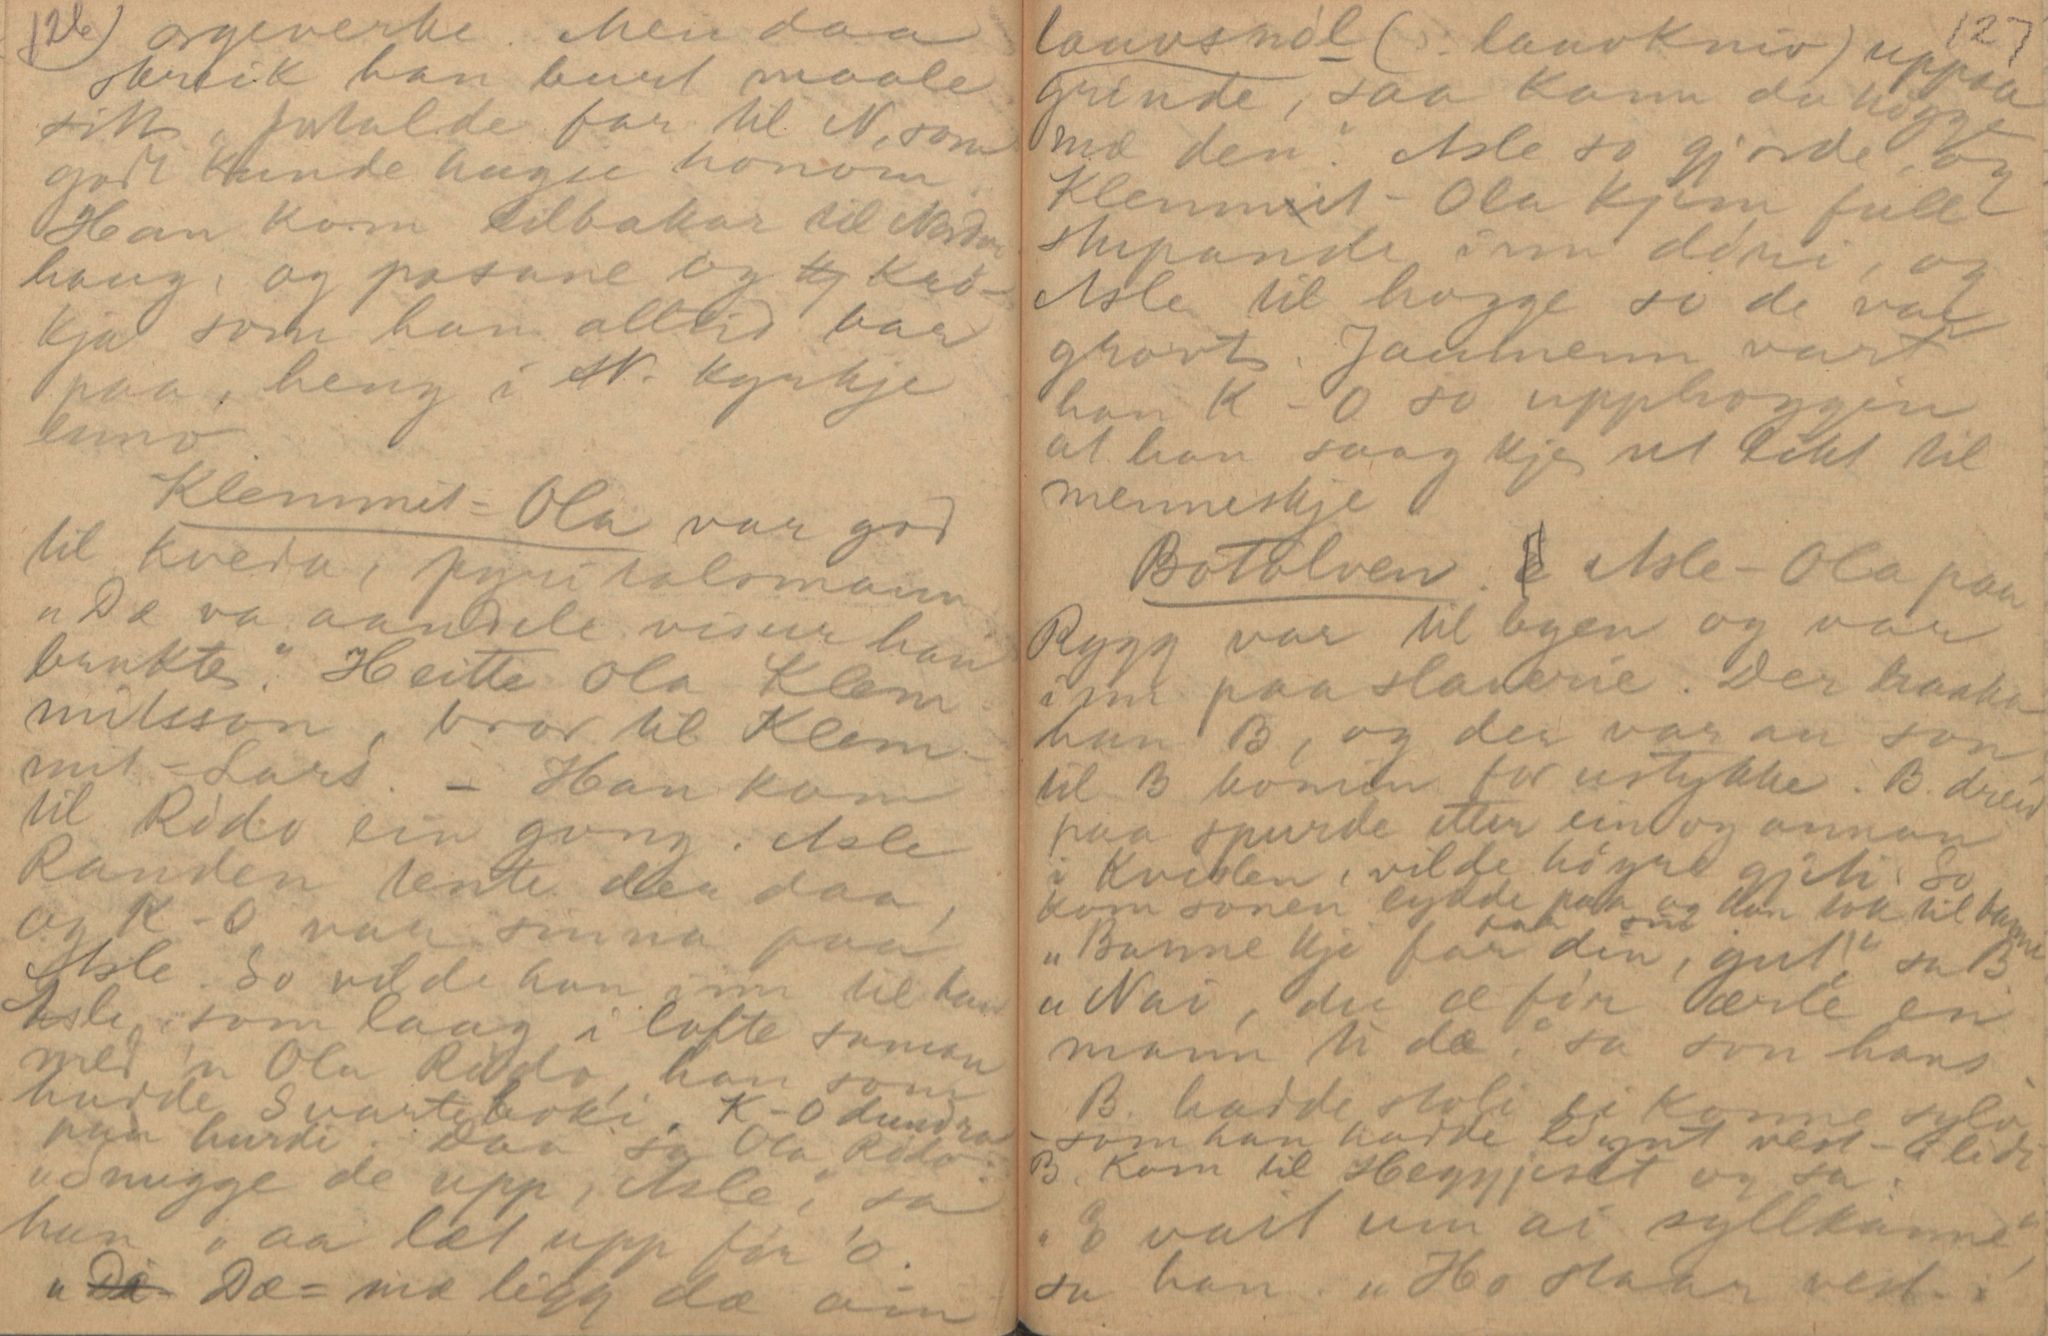 126)
orgeverke. Men daa
strauk han burt maale
sitt. Inkalde far til N, som
godt kunde hugse honom.
Han kom tilbakar til Nordan
haug, og posane og krø-
kja som han alltid bar
paa, heng i N. kyrkje
enno
Klemmit-Ola var god
til kveda, fyri talsmann
"Dæ va aandele visur han
brukte." Heitte Ola Klem
mitsson, bror til Klem-
mit-Lars. - Han kom
til Rødo ein gong. Asle
Randen tente der daa,
og K-O var sinna paa
Asle. So vilde han inn til han
Asle, som laag i lofte saman
med 'n Ola Rødo, han som
hadde Svarteboki. K-O dundra
paa hurdi. Daa sa Ola Rødo:
"Snugge de upp, Asle," sa
han, "aa læt upp før 'o.
"Dæ = mæ ligg dæ ain
127
lauvsnøl (: lauvkniv) uppaa
grinde, saa kann du høgge
mæ den." Asle so gjorde, og
Klemmit-Ola kjem full
stupande inn døri, og
Asle til hogge so de var
grovt. Jaumenn vart
han K-O so upphoggin
at han saag kje ut likt til
menneskje
Botolven. Asle-Ola paa
Rygg var til byen og var
inn paa slaveriè. Der traaka
han B, og der var au son
til B komin for ustykke. B. dreiv
paa spurde etter ein og annan
i Kvislen, vilde høyre gjeti. So
kom sonen lydde paa og han tok til banne
"Banne kje far din, gut!" sa B
"Nai, du æ før ærle en
mann ti dæ," sa son hans
B. hadde stoli ei kanne sylv
som han hadde løynt vest-i lidi
B. kom til Heggjeset og sa:
"E vait um ai syllkanne",
sa han. "Ho staar vest-i